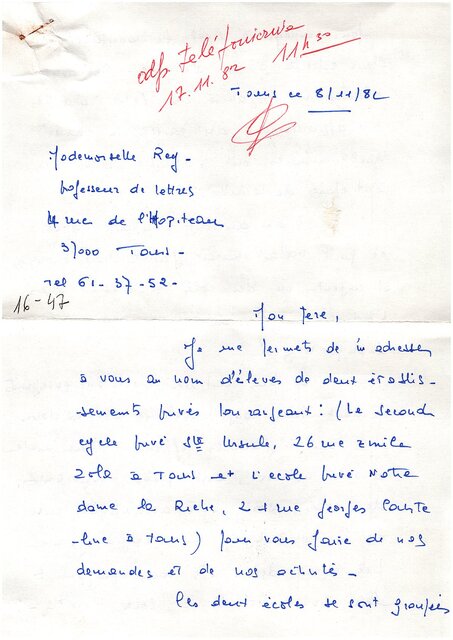 odp. telefoniczna
17.11.82 11h30
Tours ce 8/11/82
Mademoiselle Rey -
Professeur de lettres
4 rue de l'Hopiteau
37000 Tours -
Tel 61-37-52-
16-47
Mon Père,
Je me permets de m'adresser
à vous au nom d'élèves de deux établis-
sements privés tourangeaux : (Le second
cycle privé Ste Ursule, 26 rue Emile
Zola à Tours et l'école privé Notre
dame la Riche, rue Georges Courte
-line à Tours) pour vous faire de nos
demandes et de nos activités -
Les deux écoles se sont groupées